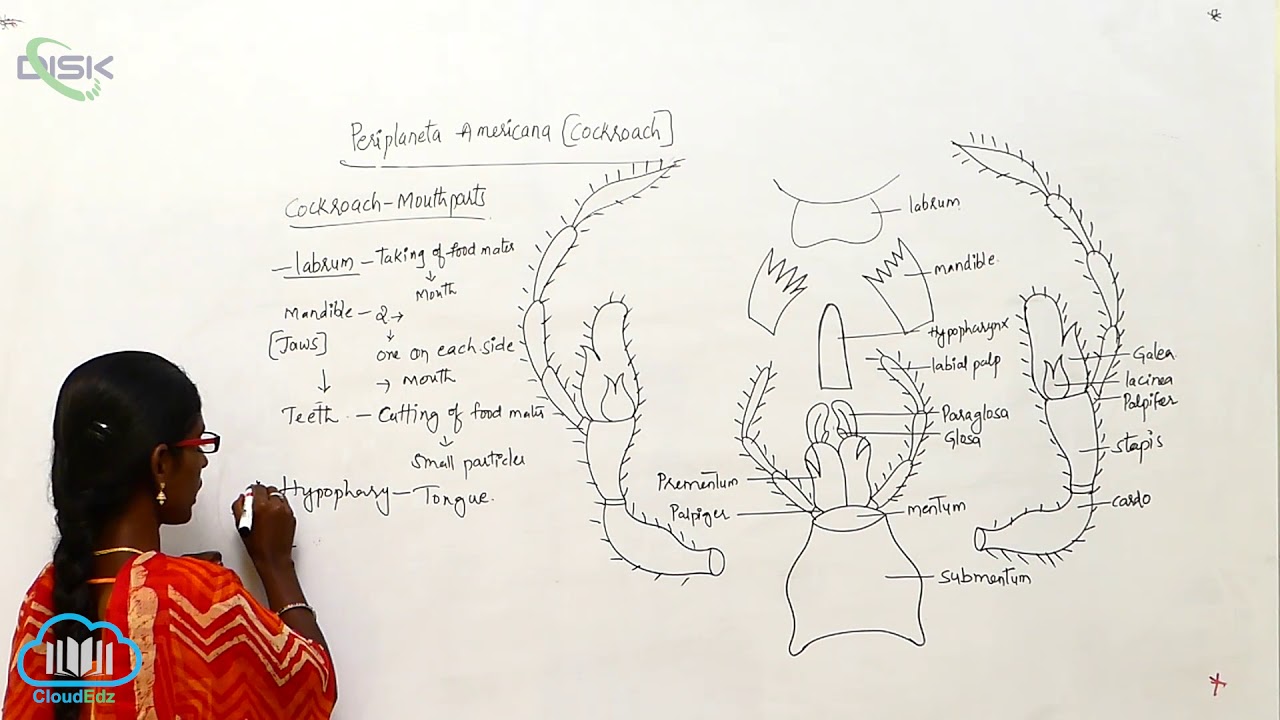 DISK
Periplaneta Americana [Cockroach]
Cockroach - Mouthparts
- labrum - Taking of food mater
↓
Mouth
Mandible - 2 →
[Jaws]
↓
one on each side
→ mouth
↓
Teeth - Cutting of food mater
↓
Small particles
Hypophary - Tongue.
labrum
mandible
Hypopharynx
labial palp
Paraglosa
Glosa
Prementum
Palpiger
mentum
Submentum
Galea
lacinea
Palpifer
Stapis
cardo
CloudEdz